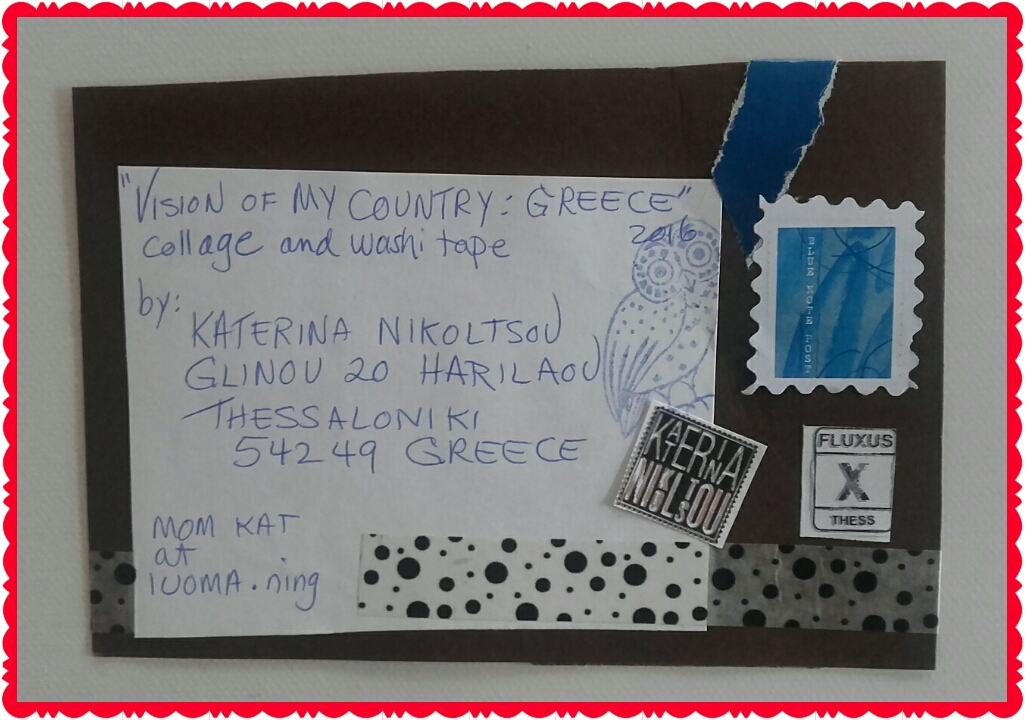 "VISION OF MY COUNTRY: GREECE"
collage and washi tape 2016
by:
KATERINA NIKOLTSOU
GLINOU 20 HARILAOU
THESSALONIKI
54249 GREECE
MOM KAT
at
IUOMA.ning
BLUE NOTE POST
KATERINA
NIKOLTSOU
FLUXUS
X
THESS